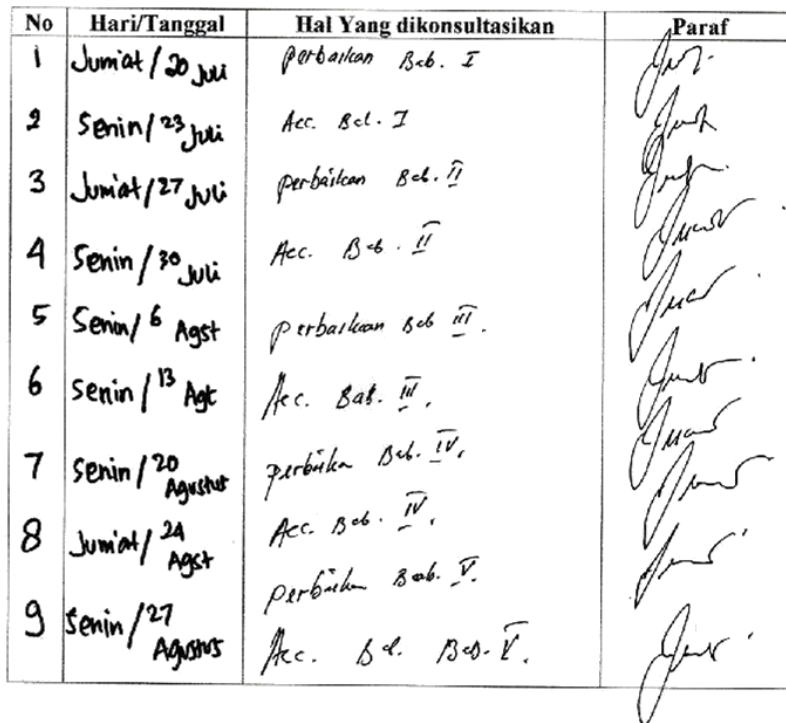 No Hari/Tanggal Hal Yang dikonsultasikan Paraf
1 Jum'at / 20 Juli perbaikan Bab. I
2 Senin / 23 Juli Acc. Bab. I
3 Jum'at / 27 Juli perbaikan Bab. II
4 Senin / 30 Juli Acc. Bab. II
5 Senin / 6 Agst perbaikan Bab III.
6 Senin / 13 Agt Acc. Bab. III.
7 Senin / 20 Agustus perbaikan Bab. IV.
8 Jum'at / 24 Agst Acc. Bab. IV.
perbaikan Bab. V.
9 Senin / 27 Agustus Acc. Bab. V.